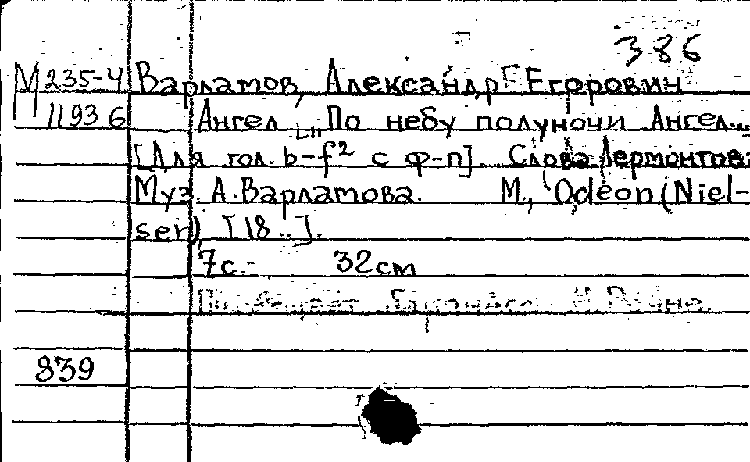 386
М 235-4 Варламов, Александр Егорович
1193 6 Ангел „По небу полуночи Ангел...
[Для гол. b-f² с ф-п]. Слова Лермонтова.
Муз. А. Варламова. М., Odeon (Niel-
sen), [18..].
7с.- 32см
839